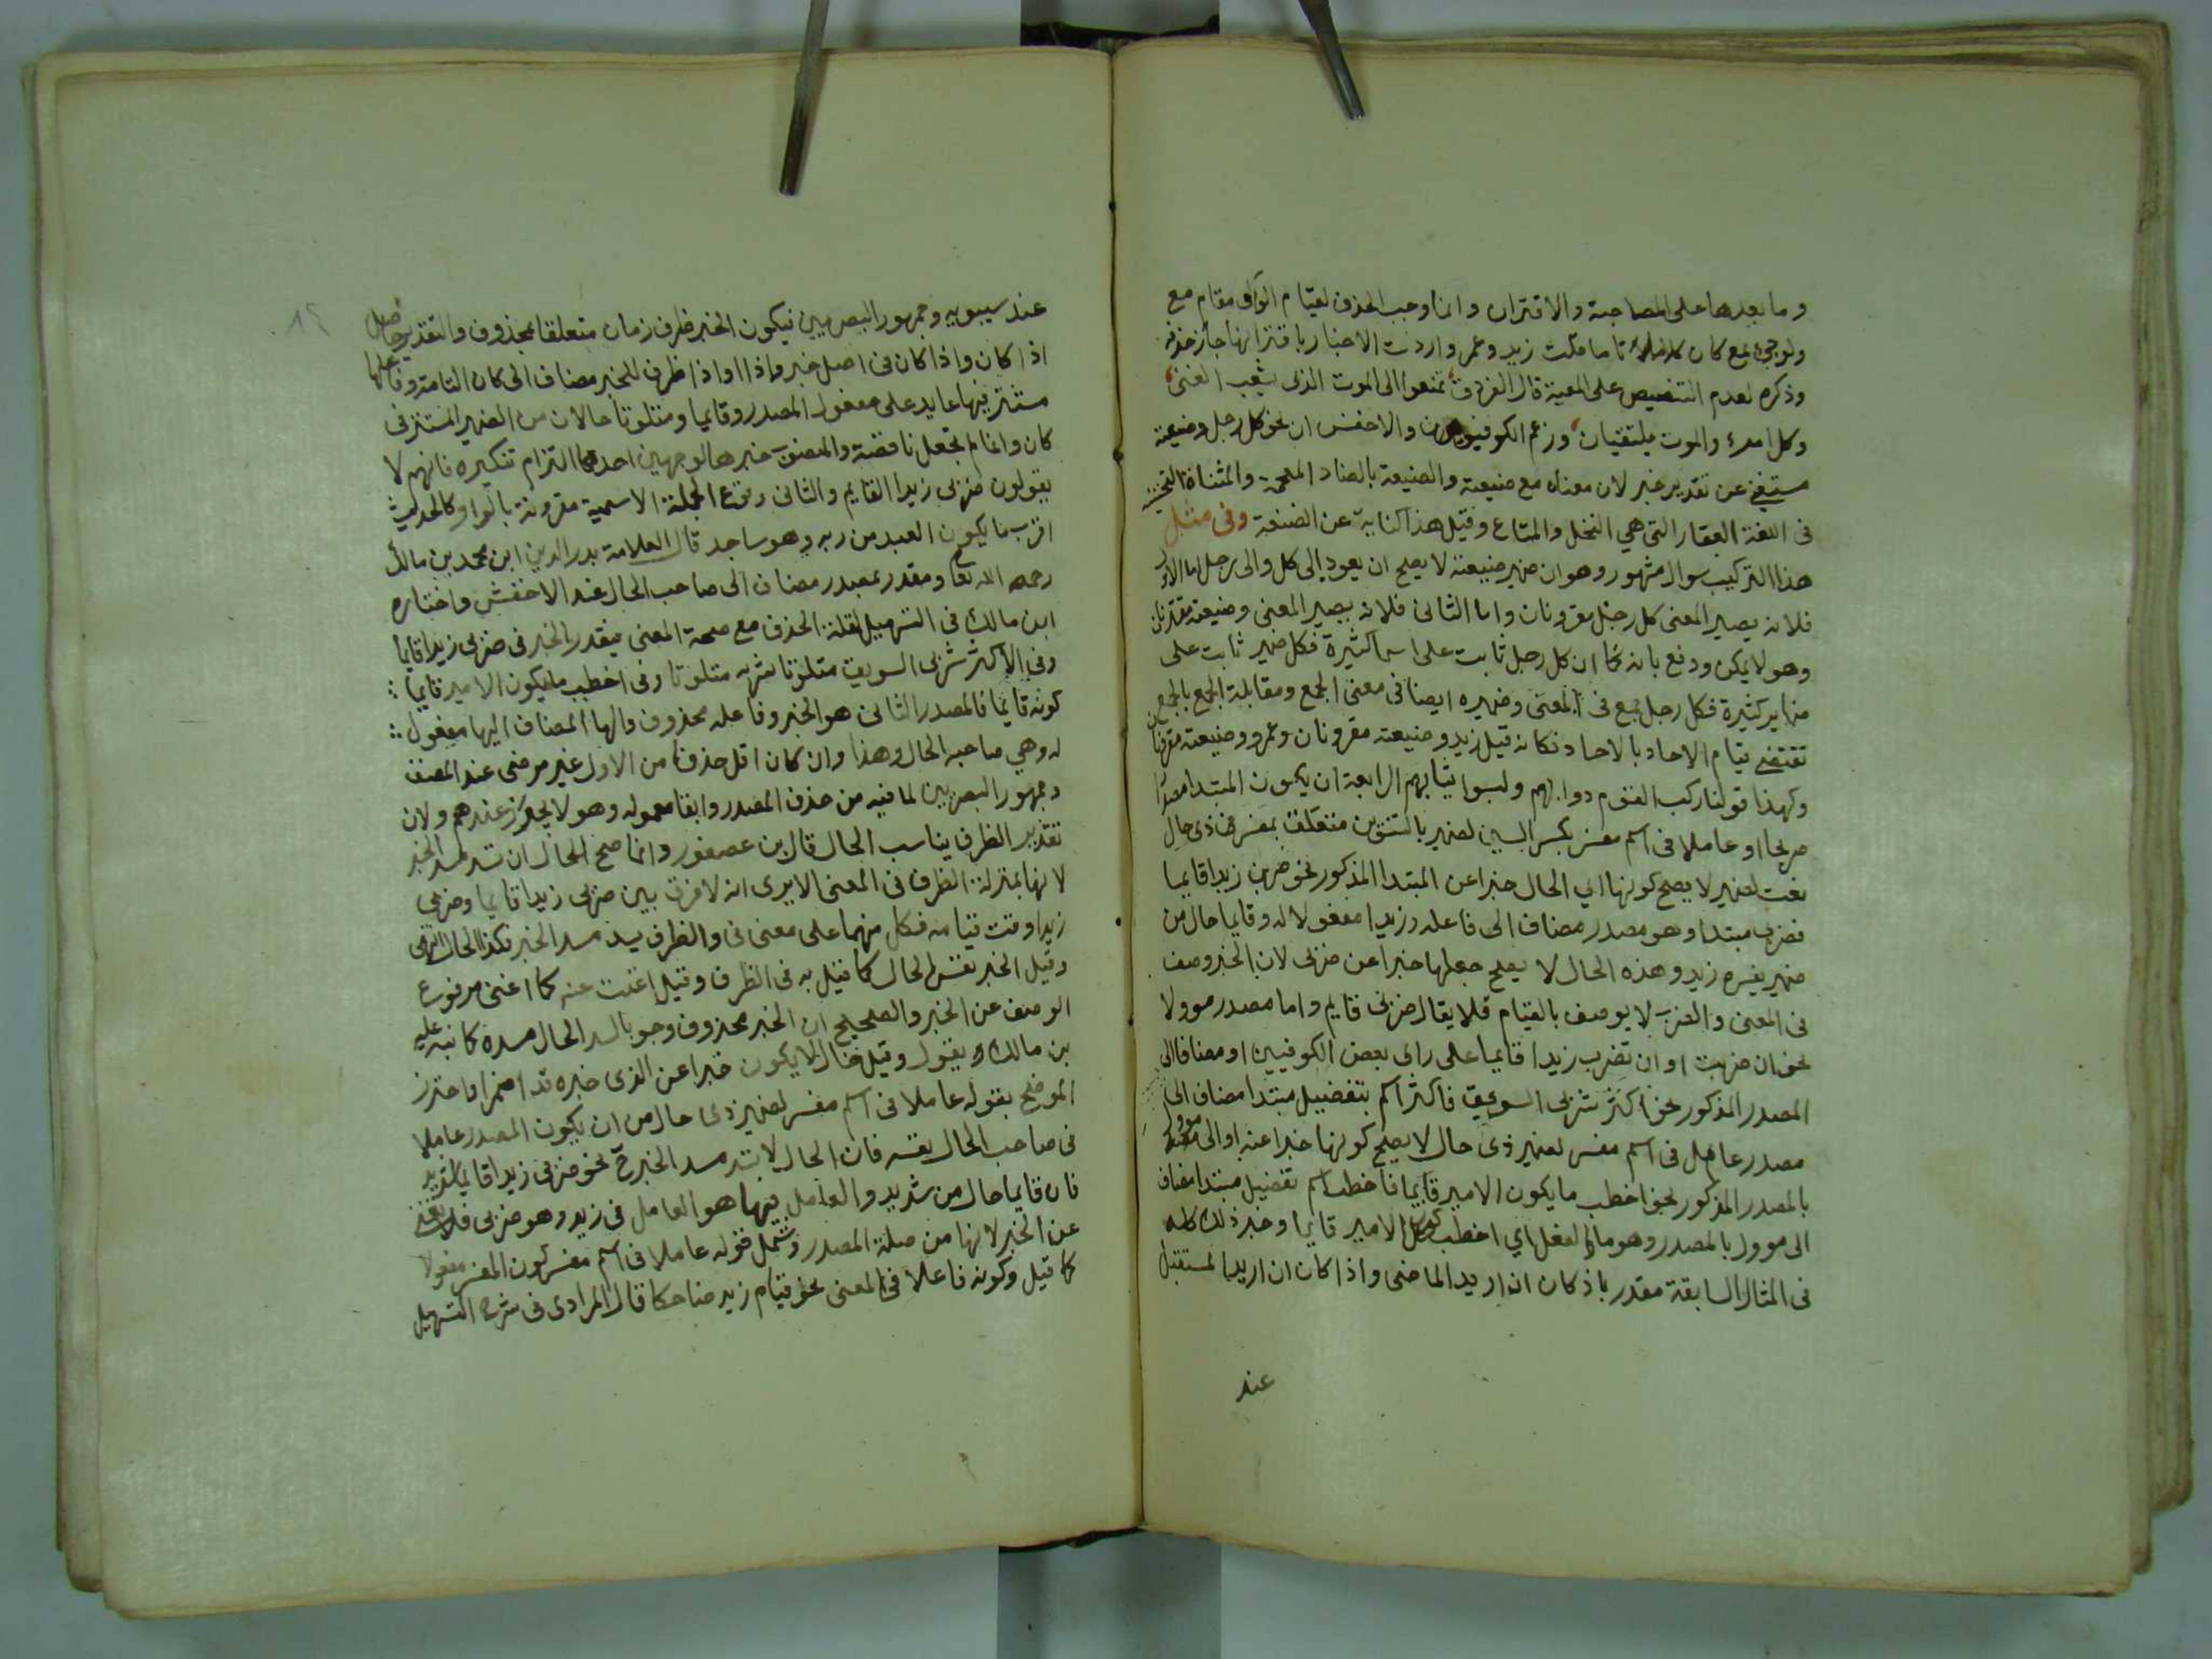 وما بعدها على المصاحبة والاقتران وانما وجب الحذف لقيام الواو مقام مع
ولو جيء بمع كان كلاما تاما قلت زيد وعمر واردت الاخبار باقترانهما جاز حذفه
وذكره لعدم التنصيص على المعية قال الفرزدق تمنوا الى الموت الذي يشعب الفتى
وكل امرء والموت يلتقيان وزعم الكوفيون والاخفش ان نحو كل رجل وضيعته
مستغن عن تقدير خبر لان معناه مع ضيعته والضيعة بالضاد المعجمة والمثناة التحتية
في اللغة العقار التي هي النخل والمتاع وقيل هذا كناية عن الصنعة وفي مثل
هذا التركيب سوال مشهور وهو ان ضمير ضيعته لا يصلح ان يعود الى كل والى رجل اما الاول
فلانه يصير المعنى كل رجل مقرونان واما الثاني فلانه يصير المعنى وضيعته مقترنان
وهو لا يمكن ودفع بانه كما ان كل رجل ثابت على اسما كثيرة فكل ضمير ثابت على
ضماير كثيرة فكل رجل جمع في المعنى وضميره ايضا في معنى الجمع ومقابلة الجمع بالجمع
تقتضي قيام الاحاد بالاحاد فكانه قيل زيد وضيعته مقرونان وعمرو وضيعته مقرونان
وكهذا قولنا ركب القوم دوابهم ولبسوا ثيابهم الرابعة ان يكون المبتدا مصدرا
صريحا او عاملا في اسم مفسر بكسر السين لضمير بالتنوين متعلق بمفسر ذي حال
نعت لضمير لا يصح كونها اي الحال خبرا عن المبتدا المذكور نحو ضربي زيدا قايما
فضربي مبتدا وهو مصدر مضاف الى فاعله وزيدا مفعولا له وقايما حال من
ضمير يفسره زيد وهذه الحال لا يصلح جعلها خبرا عن ضربي لان الخبر وصف
في المعنى والضرب لا يوصف بالقيام فلا يقال ضربي قايم واما مصدر موولا
نحو ان ضربت او ان تضرب زيدا قايما على راي بعض الكوفيين او مضافا الى
المصدر المذكور نحو اكثر شربي السويق فاكثر اسم تفضيل مبتدا مضاف الى
مصدر عامل في اسم مفسر لضمير ذي حال لا يصلح كونها خبرا عنه او الى موول
بالمصدر المذكور نحو اخطب ما يكون الامير قايما فاخطب اسم تفضيل مبتدا مضاف
الى موول بالمصدر وهو ما والفعل اي اخطب كون الامير قايما وخبر ذلك كله
في المثال السابقة مقدر باذ كان ان اريد الماضي واذا كان ان اريد المستقبل
عند
١٦
عند سيبويه وجمهور البصريين فيكون الخبر ظرف زمان متعلقا بمحذوف والتقدير حاصل
اذا كان واذا كان في اصل خبر واذا اواذ ظرف للخبر مضاف الى كان التامة وفاعلها
مستتر فيها عايد على مفعول المصدر وقايما وملتوتا حالان من الضمير المستتر في
كان وانما لم تجعل ناقصة والمنصوب خبرها لوجهين احدهما التزام تنكيره فانهم لا
يقولون ضربي زيدا القايم والثاني وقوع الجملة الاسمية مقرونة بالواو كالحديث
اقرب ما يكون العبد من ربه وهو ساجد قال العلامة بدر الدين ابن محمد بن مالك
رحمه الله تعالى ومقدر بمصدر مضاف الى صاحب الحال عند الاخفش واختاره
ابن مالك في التسهيل لقلة الحذف مع صحة المعنى فيقدر الخبر في ضربي زيدا قايما
وفي الاكثر شربي السويق ملتوتا شربه ملتوتا وفي اخطب ما يكون الامير قايما
كونه قايما فالمصدر الثاني هو الخبر وفاعله محذوف والها المضاف اليها مفعول
له وهي صاحبه الحال وهذا وان كان اقل حذفا من الاول غير مرضي عند المصنف
وجمهور البصريين لما فيه من حذف المصدر وابقا معموله وهو لا يجوز عندهم ولان
تقدير الظرف يناسب الحال قال بن عصفور وانما صح الحال ان تسد مسد الخبر
لانها بمنزلة الظرف في المعنى الا يرى انه لا فرق بين ضربي زيدا قايما وضربي
زيدا وقت قيامه فكل منهما على معنى في والظرف يسد مسد الخبر فكذا الحال انتهى
وقيل الخبر نفس الحال كما قيل به في الظرف وقيل اغنت عنه كما اغنى مرفوع
الوصف عن الخبر والصحيح ان الخبر محذوف وجوبا لسد الحال مسده كما نبه عليه
بن مالك بقوله وقبل حال لا يكون خبرا عن الذي خبره قد اضمرا واحترز
الموضح بقوله عاملا في اسم مفسر لضمير ذي حال من ان يكون المصدر عاملا
في صاحب الحال نفسه فان الحال لا تسد مسد الخبر ح نحو ضربي زيدا قايما شديد
فان قايما حال من زيد والعامل فيها هو العامل في زيد وهو ضربي فلا تغني
عن الخبر لانها من صلة المصدر وشمل قوله عاملا في اسم مفسر كون المفسر مفعولا
كما قيل وكونه فاعلا في المعنى نحو قيام زيد ضاحكا قال المرادي في شرح التسهيل